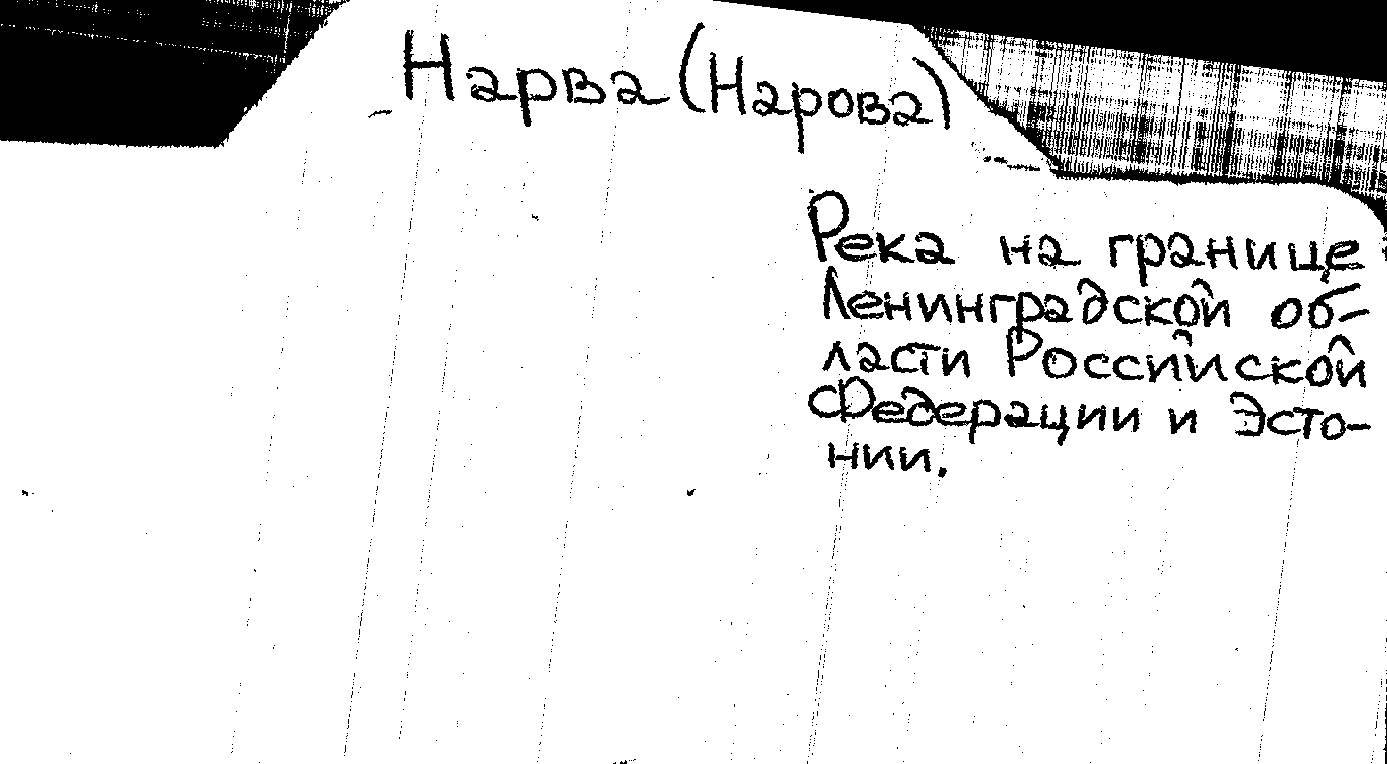 Нарва (Нарова)
Река на границе
Ленинградской об-
ласти Российской
Федерации и Эсто-
нии.